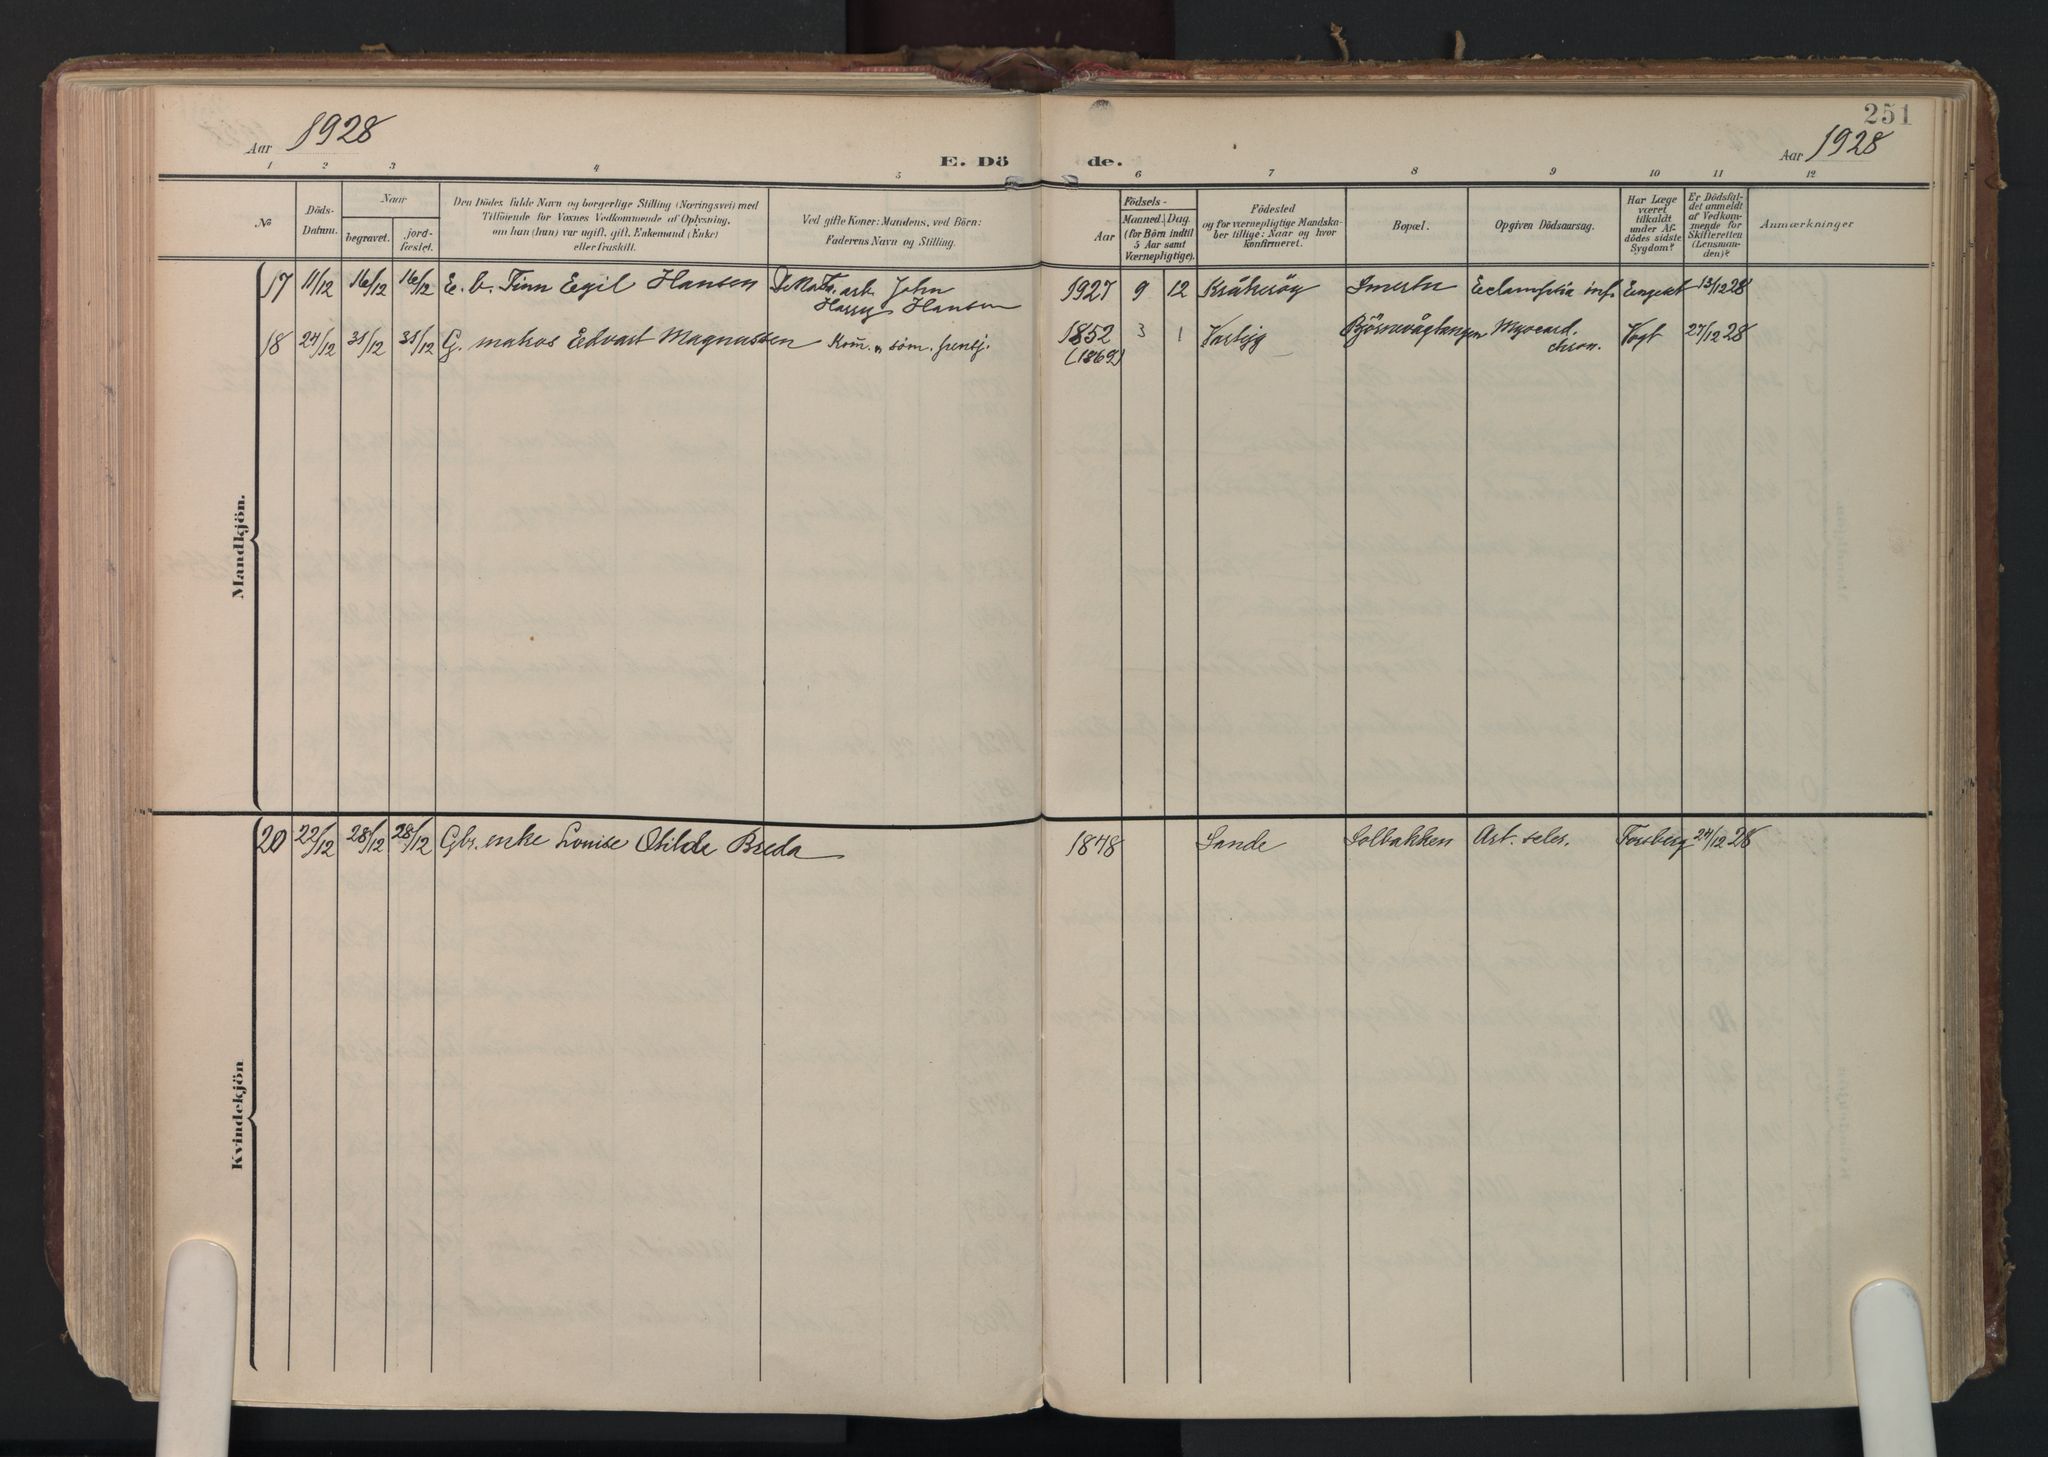 251
Aar 1928
Aar 1928
E. Dö
de.
1 2 3 4 5 6 7 8 9 10 11 12
No
Döds-
Datum.
Naar
begravet.
jord-
fæstet.
Den Dödes fulde Navn og borgerlige Stilling (Næringsvei) med
Tilföiende for Voxnes Vedkommende af Oplysning,
om han (hun) var ugift, gift, Enkemand (Enke)
eller fraskilt.
Ved gifte Koner: Mandens, ved Börn:
Faderens Navn og Stilling.
Födsels-
Aar
Maaned.
Dag.
(for Börn indtil
5 Aar samt
Værnepligtige).
Födested
og for værnepligtige Mandska-
ber tillige: Naar og hvor
konfirmeret.
Bopæl.
Opgiven Dödsaarsag.
Har Læge
været
tilkaldt
under Af-
dödes sidste
Sygdom?
Er Dödsfal-
det anmeldt
af Vedkom-
mende for
Skifteretten
(Lensman-
den)?
Anmærkninger
Mandkjön.
17 11/12 16/12 16/12 E. b. Finn Egil Hansen arb. John
Harry Hansen
1927 9 12 Kråkeröy Smertu Eclampsia inf. 13/12 28
18 24/12 31/12 31/12 G. matros Edvart Magnussen
1852 3 1
(1862)
Björnevågtangen Myocard.
chron.
Vogt 27/12 28
Kvindekjön
20 22/12 28/12 28/12 Gbr. enke Lovise Otilde Breda 1848 Sande Solbakken Art. scler. Forsberg 24/12 28